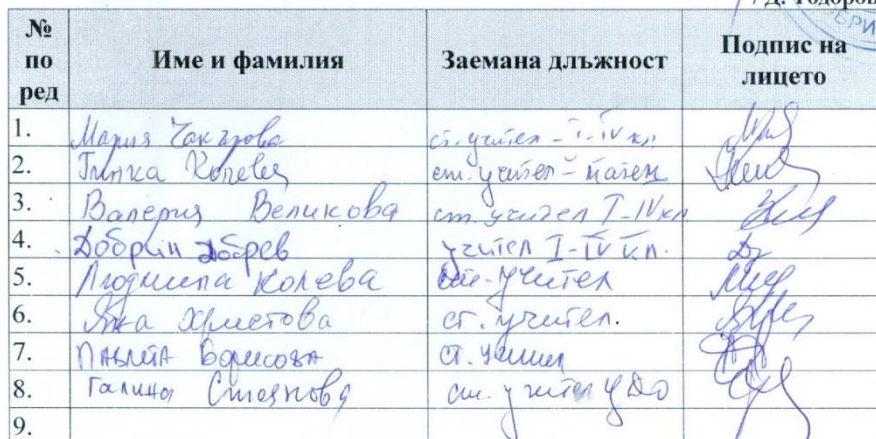 Д. Тодоров
№ по ред Име и фамилия Заемана длъжност Подпис на лицето
1. Мария Чакърова ст. учител - I-IV кл.
2. Гинка Колева ст. учител - матем
3. Валерия Великова ст. учител I-IV кл
4. Добрин Добрев учител I-IV кл.
5. Людмила Колева ст. учител
6. Яна Христова ст. учител.
7. Павлета Борисова ст. учител
8. Галина Стоянова ст. учител ЦДО
9.